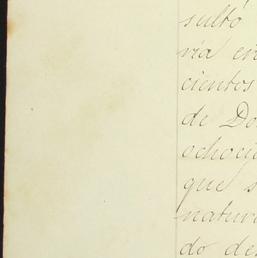 sultó
ría en
cientos
de Do
ochoci
que s
natur
do de